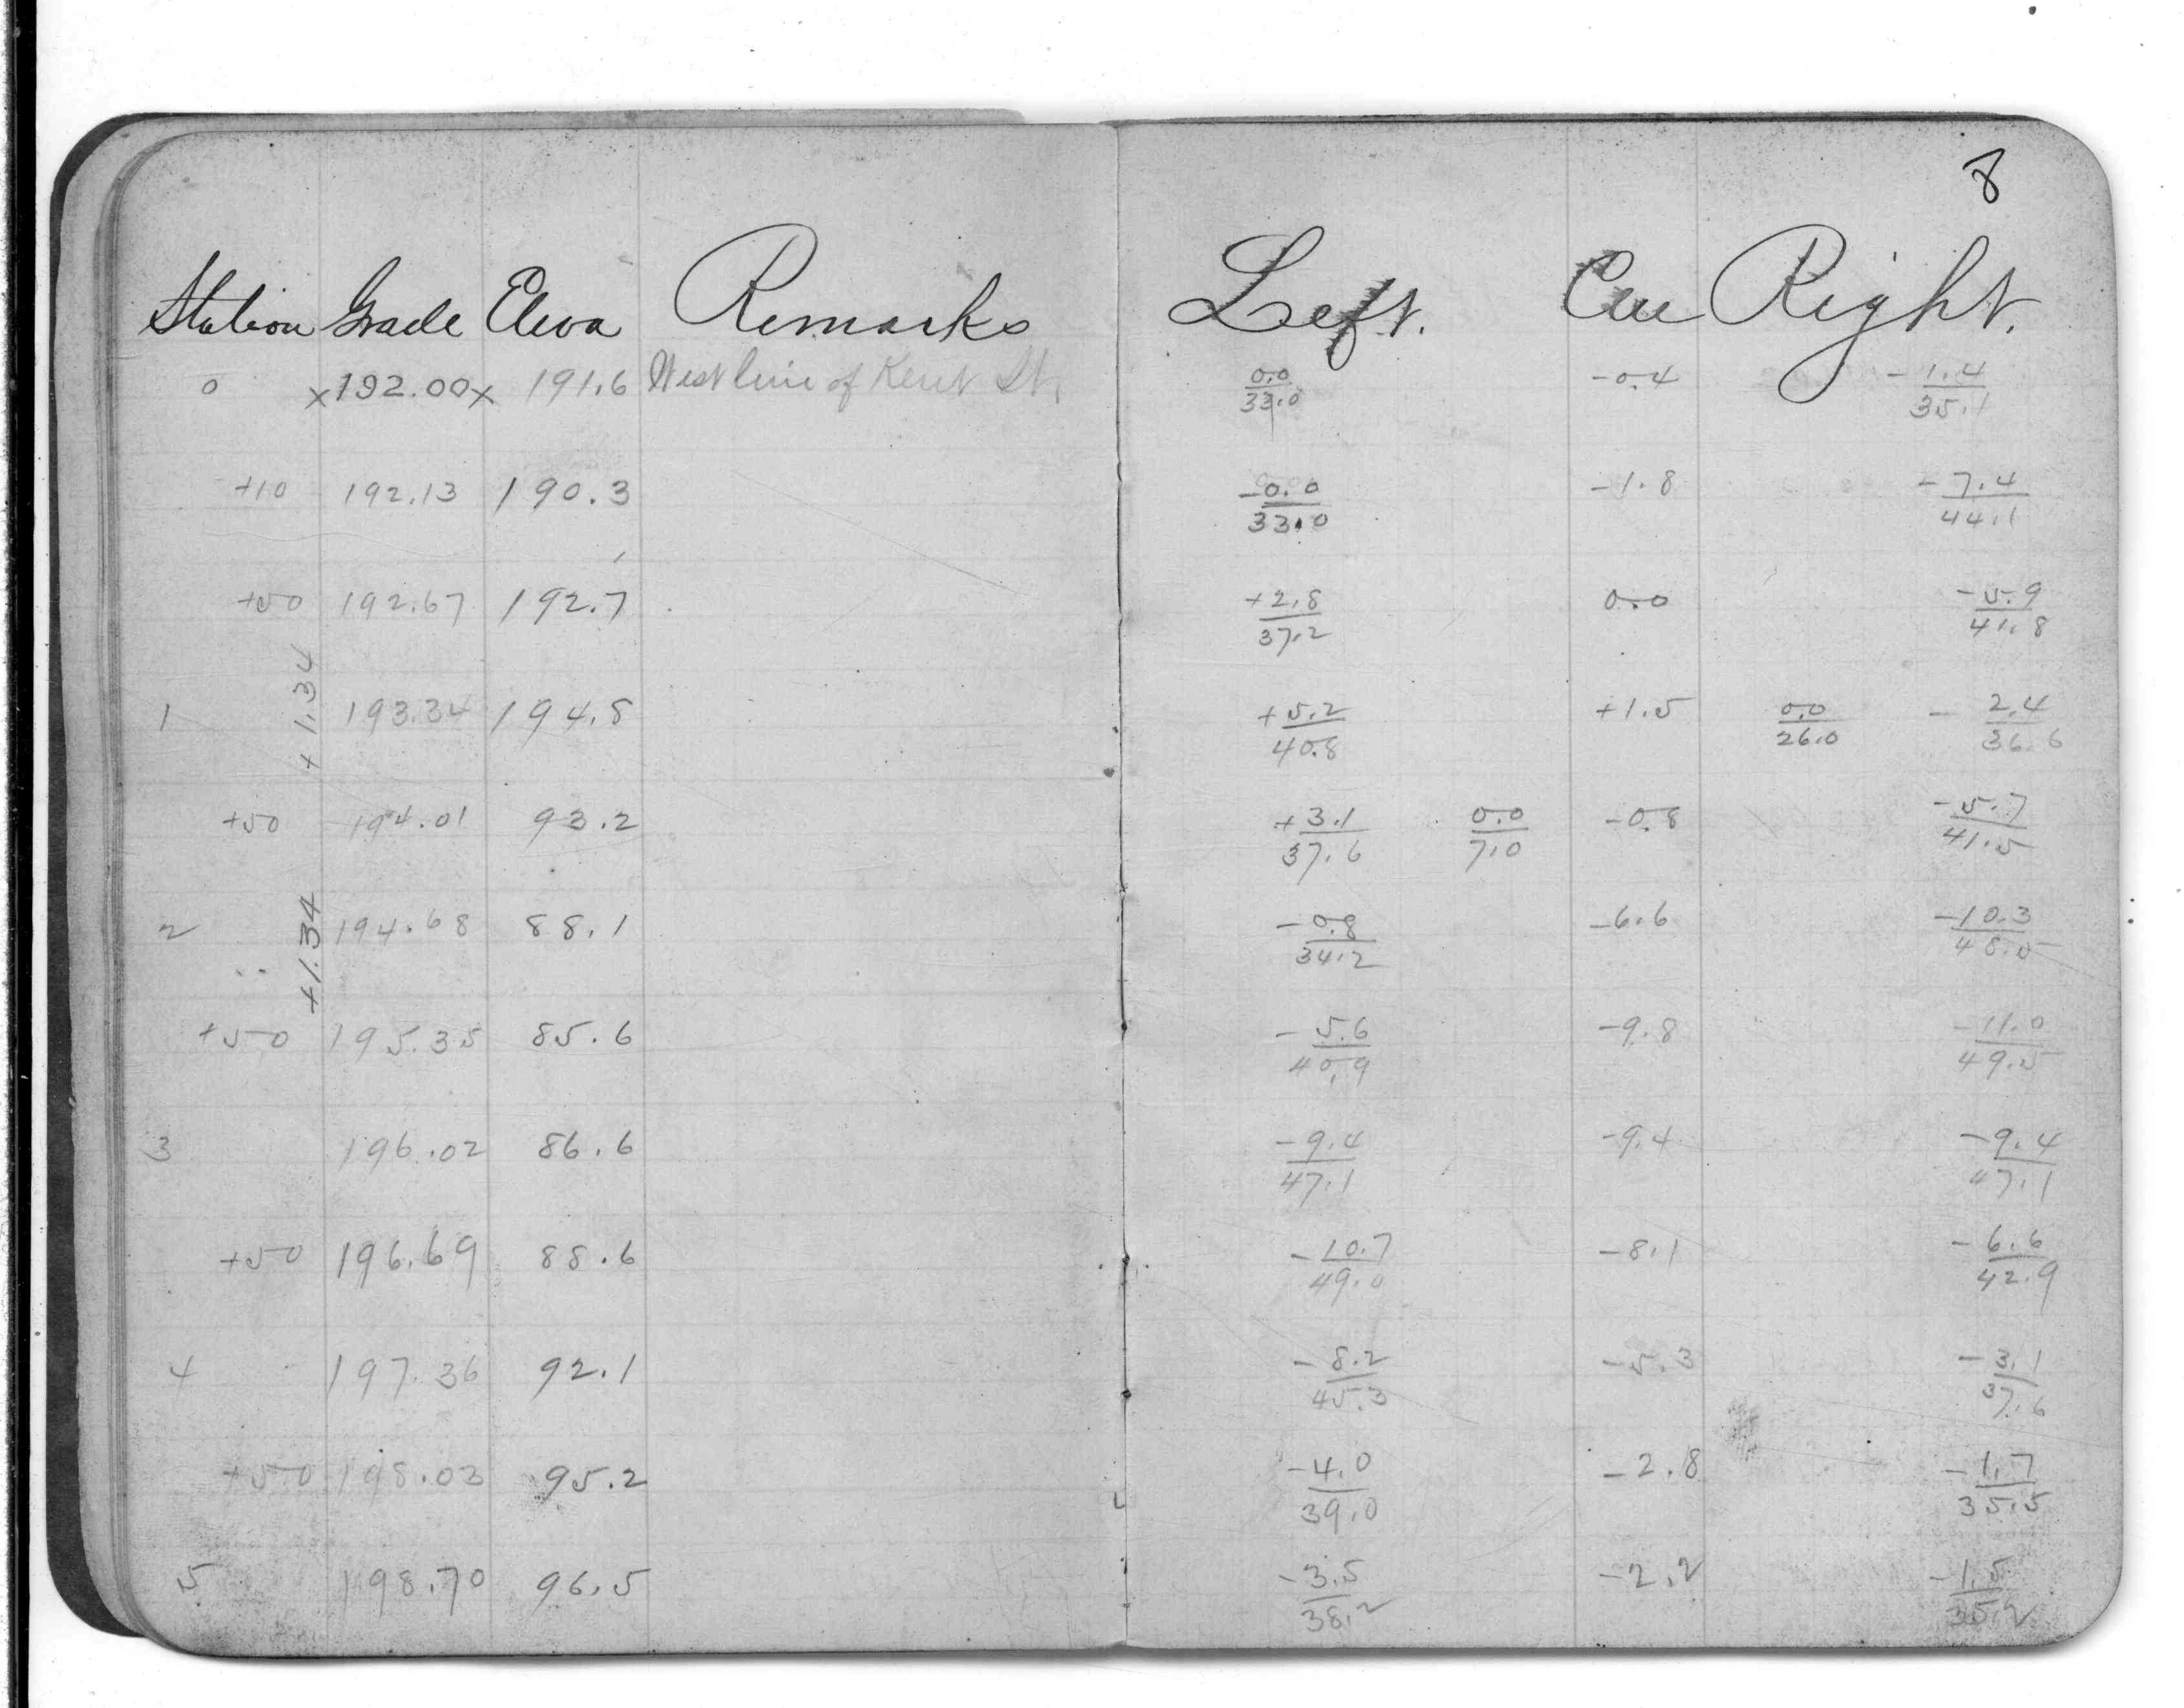 8
Station Grade Eleva Remarks Left. Cen Right.
0 x192.00x 191.6 West line of Kent St. 0.0/33.0 -0.4 -1.4/35.1
+10 192.13 190.3 -0.0/33.0 -1.8 -7.4/44.1
+50 192.67 192.7 +2.8/37.2 0.0 -5.9/41.8
+1.34
1 193.34 194.8 +5.2/40.8 +1.5 0.0/26.0 -2.4/36.6
+50 194.01 93.2 +3.1/37.6 0.0/7.0 -0.8 -5.7/41.5
+1.34
2 194.68 88.1 -0.8/34.2 -6.6 -10.3/48.5
+50 195.35 85.6 -5.6/40.9 -9.8 -11.0/49.5
3 196.02 86.6 -9.4/47.1 -9.4 -9.4/47.1
+50 196.69 88.6 -10.7/49.0 -8.1 -6.6/42.9
4 197.36 92.1 -8.2/45.3 -5.3 -3.1/37.6
+50 198.03 95.2 -4.0/39.0 -2.8 -1.7/35.5
5 198.70 96.5 -3.5/38.2 -2.2 -1.5/35.2